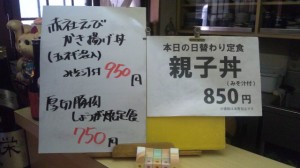 赤社えび
かき揚げ丼
(五枚入)
みそ汁付 950円
厚切豚肉
しょうが焼定食
750円
本日の日替わり定食
親子丼
(みそ汁付)
850円